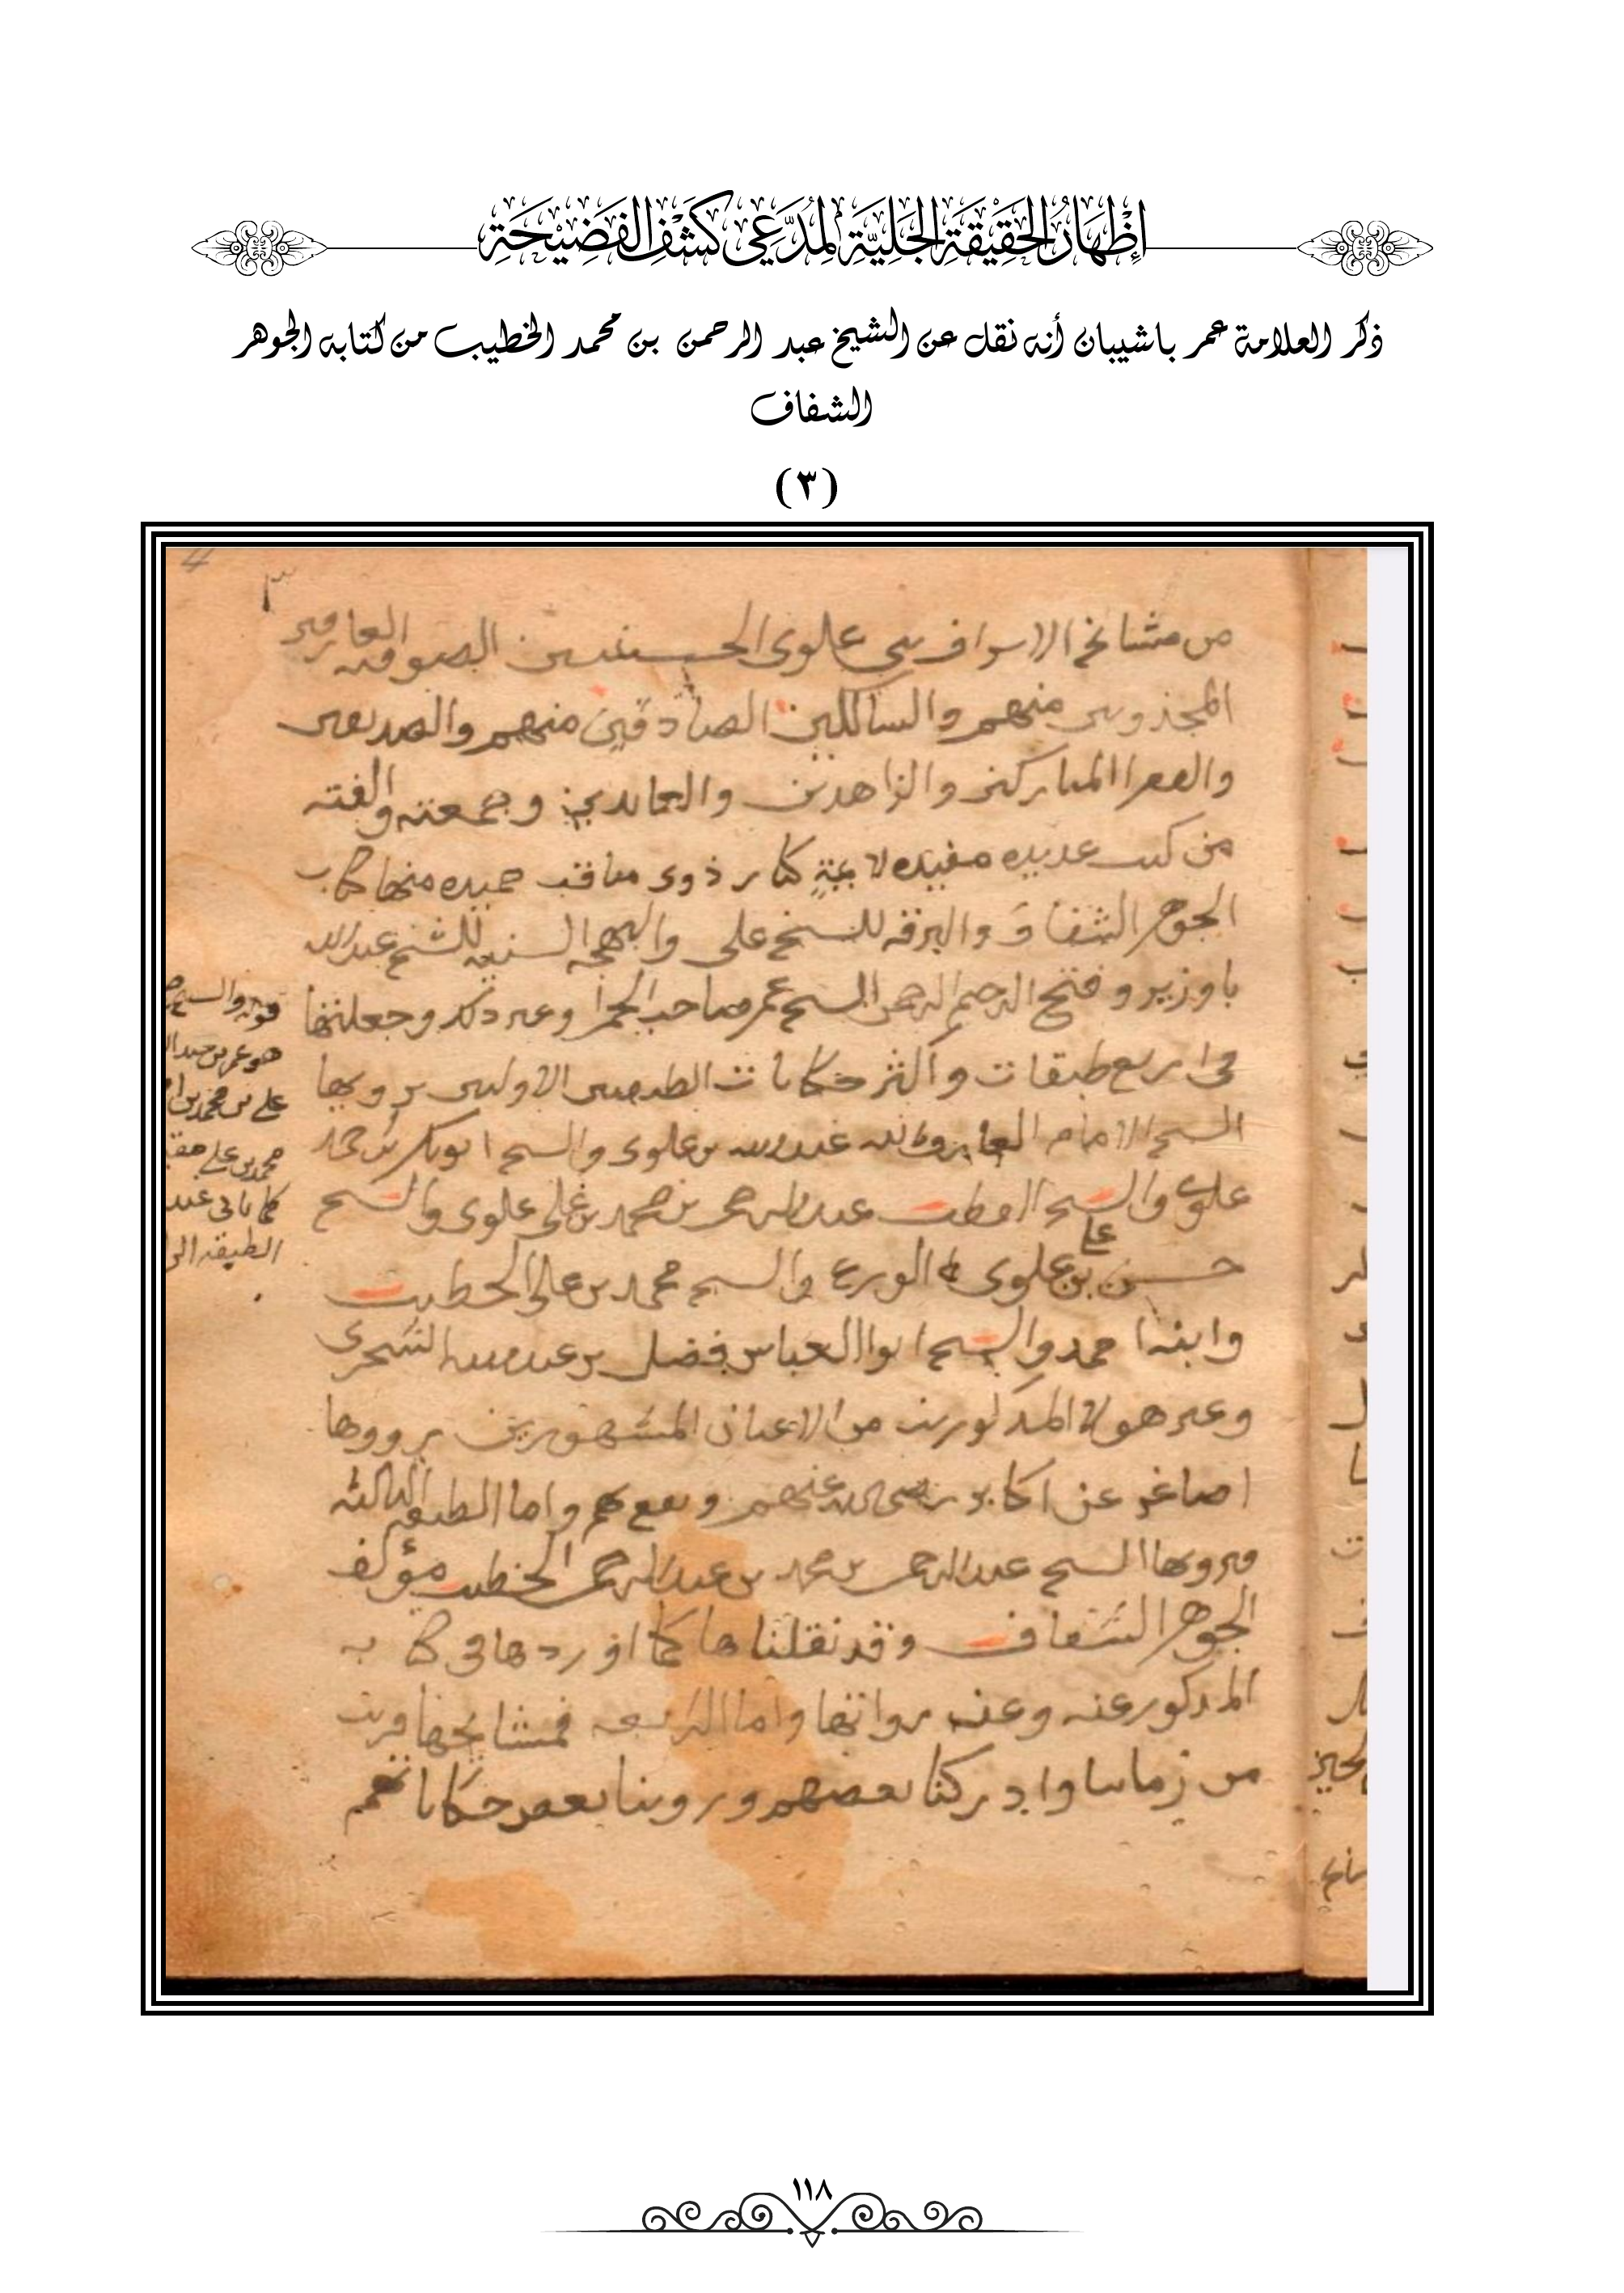 إِظْهَارُ الحَقِيْقَةِ الجَلِيَّةِ لِمُدَّعِي كَشْفِ الفَضِيْحَةِ
ذكر العلامة عمر باشيبان أنه نقل عن الشيخ عبد الرحمن بن محمد الخطيب من كتابه الجوهر
الشفاف
(٣)
٣
من مشايخ الاسراف بني علوى الحسينيين الصوفيه العارفين
المجذوبين منهم والسالكين الصادقين منهم والصديقين
والفقرا المباركين والزاهدين والعابدين وجمعته والفته
من كتب عديده مفيده لايمة كابر ذوى مناقب حميده منها كتاب
الجوهر الشفاف والبرقه للشيخ على والبهجه السنيه للشيخ عبدالله
باوزير وفتح الرحيم الرحمن للشيخ عمر صاحب الحمرا وغير ذلك وجعلتها
فى اربع طبقات واكثر حكايات الطبقتين الاوليين يرويها
الشيخ الامام العارف بالله عبدالله بن علوى والشيخ ابوبكر بن احمد
علوى والشيخ القطب عبدالرحمن بن محمد بن على علوى والشيخ
حسن بن على علوى الورع والشيخ محمد بن على الخطيب
وابنه احمد والشيخ ابوا العباس فضل بن عبدالله الشحرى
وغير هولاء المذكورين من الاعيان المشهورين يرووها
اصاغر عن اكابر رضى الله عنهم ونفع بهم واما الطبقه الثالثه
فيرويها الشيخ عبدالرحمن بن محمد بن عبدالرحمن الخطيب مؤلف
الجوهر الشفاف وقد نقلناها كما اوردها فى كتابه
المذكور عنه وعنه رواتها واما الرابعه فمشايخها قريب
من زماننا وادركنا بعضهم وروينا بعض حكاياتهم
قوله والشيخ
هو عمر بن عبدال
على بن محمد بن ا
محمد بن على
كما ياتى عند
الطبقه الر
١١٨